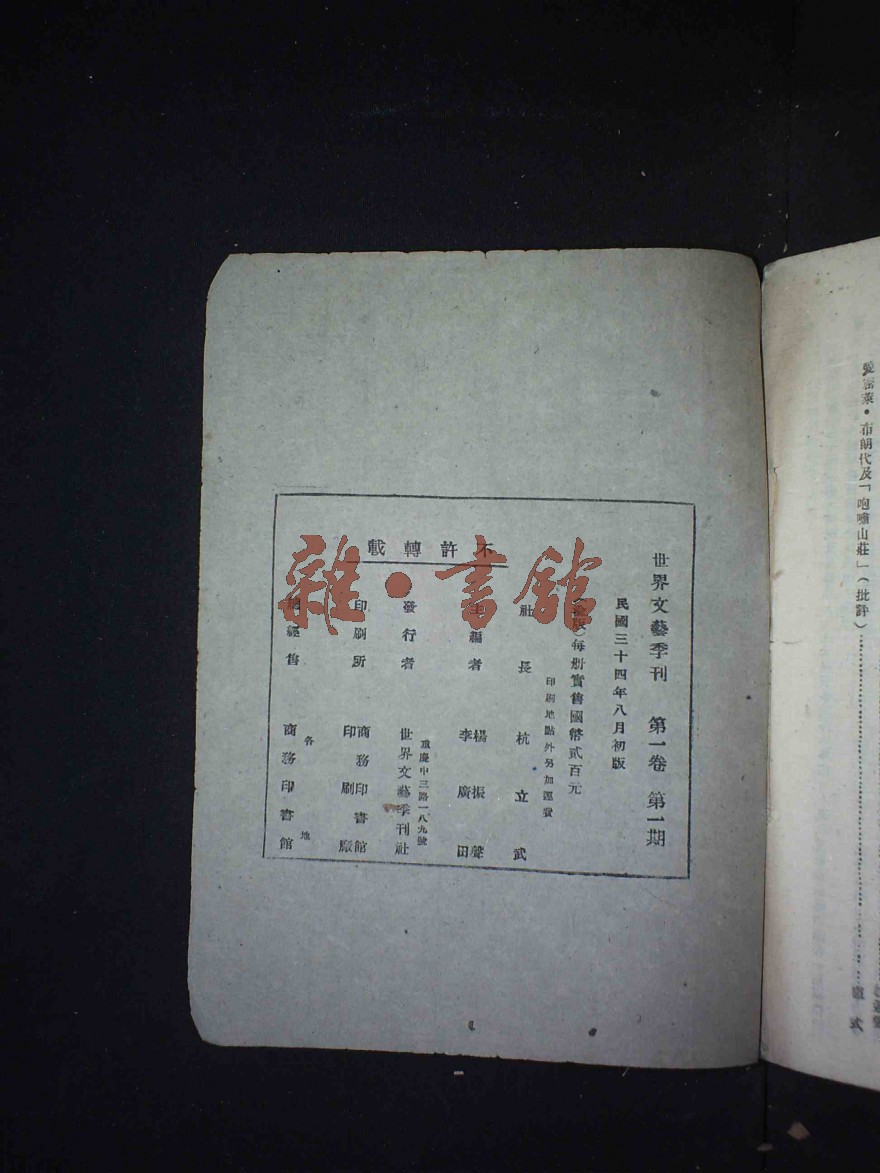 世界文藝季刊 第一卷 第一期
民國三十四年八月初版
版）每册實售國幣貳百元
印刷地點外另加運費
社長 杭立武
主編者 楊振聲 李廣田
發行者 世界文藝季刊社
重慶中三路一八九號
印刷所 商務印書館印刷廠
經售 各地商務印書館
不許轉載
雜·書館
布朗代及「咆嘯山莊」（批評）